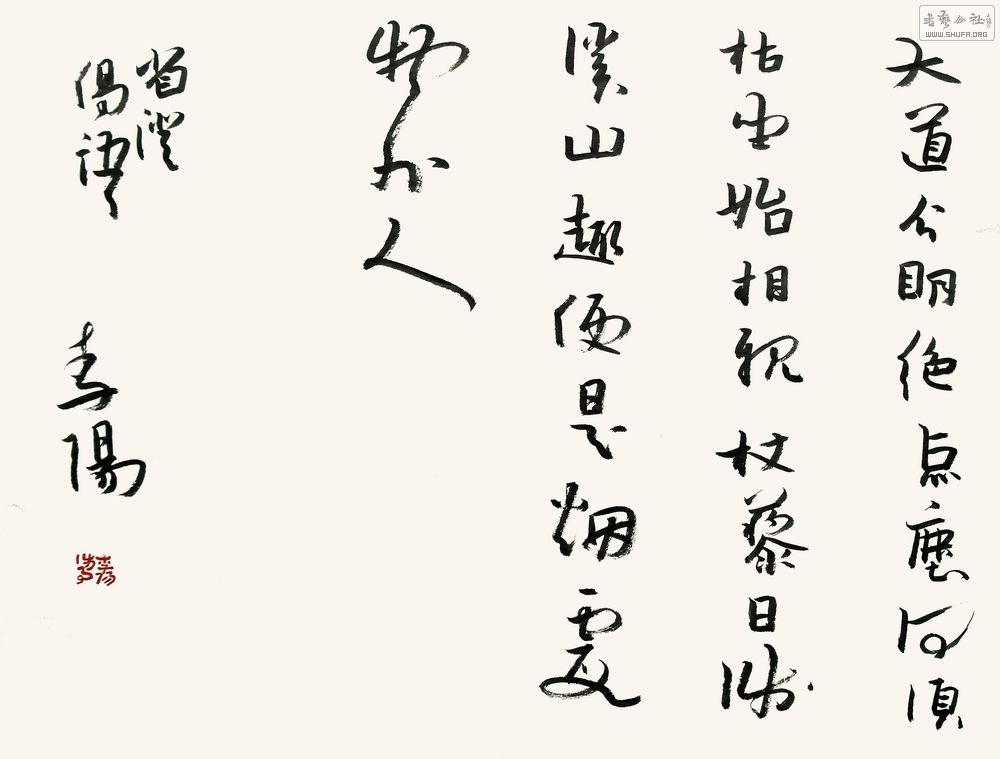 書藝公社
WWW.SHUFA.ORG
大道分明绝点塵何須
枯坐始相親杖藜日涉
溪山趣便是烟霞
物外人
省澄
偈語
陽